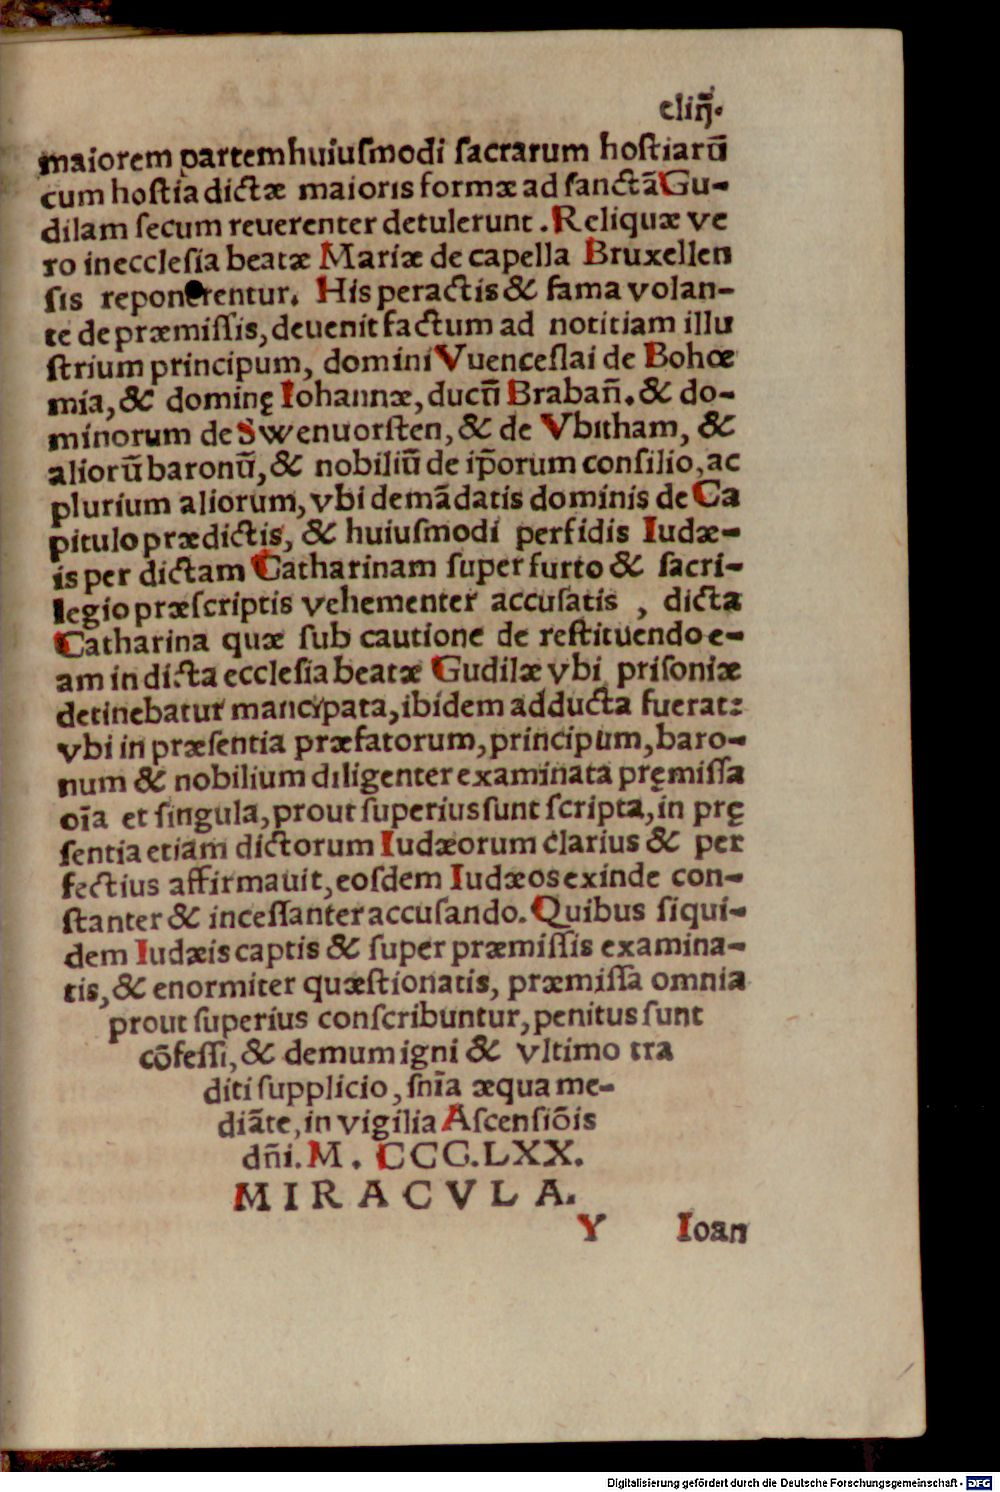 cliij.
maiorem partem huiuſmodi ſacrarum hoſtiarū
cum hoſtia dictæ maioris formæ ad ſanctā Gu-
dilam ſecum reuerenter detulerunt. Reliquæ ve
ro in eccleſia beatæ Mariæ de capella Bruxellen
ſis reponerentur. His peractis & fama volan-
te de præmiſſis, deuenit factum ad notitiam illu
ſtrium principum, domini Vuenceſlai de Bohœ
mia, & dominę Iohannæ, ducū Brabañ. & do-
minorum de Swenuorſten, & de Vbitham, &
aliorū baronū, & nobiliū de ip̄orum conſilio, ac
plurium aliorum, vbi demādatis dominis de Ca
pitulo prædictis, & huiuſmodi perfidis Iudæ-
is per dictam Catharinam ſuper furto & ſacri-
legio præſcriptis vehementer accuſatis , dicta
Catharina quæ ſub cautione de reſtituendo e-
am in dicta eccleſia beatæ Gudilæ vbi priſoniæ
detinebatur mancipata, ibidem adducta fuerat:
vbi in præſentia præfatorum, principum, baro-
num & nobilium diligenter examinata pręmiſſa
oīa et ſingula, prout ſuperius ſunt ſcripta, in prę
ſentia etiam dictorum Iudæorum clarius & per
fectius affirmauit, eoſdem Iudæos exinde con-
ſtanter & inceſſanter accuſando. Quibus ſiqui-
dem Iudæis captis & ſuper præmiſſis examina-
tis, & enormiter quæſtionatis, præmiſſa omnia
prout ſuperius conſcribuntur, penitus ſunt
cōfeſſi, & demum igni & vltimo tra
diti ſupplicio, ſnīa æqua me-
diāte, in vigilia Aſcenſiōis
dñi. M. CCC.LXX.
MIRACVLA.
Y Ioan
Digitalisierung gefördert durch die Deutsche Forschungsgemeinschaft - DFG